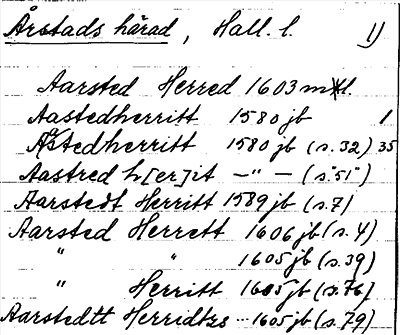 Årstads härad, Hall. l. 1)
Aarsted Herred 1603 mtl.
Aastedherritt 1580 jb 1
Astedherritt 1580 jb (s. 32) 35
Aastred h[er]it —"— (s 51)
Aarstedt Herritt 1589 jb (s. 7)
Aarsted Herrett 1606 jb (s. 4)
" " 1605 jb (s. 39)
" Herritt 1605 jb (s. 76)
Aarstedtt Herridtzs ... 1605 jb (s. 79)